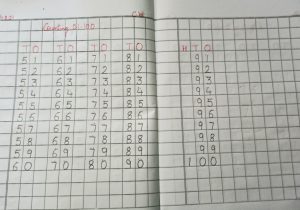 C.W
51-100
T O T O T O T O H T O
5 1 6 1 7 8 1 9 1
5 2 6 2 7 2 8 2 9 2
5 3 6 3 7 3 8 3 9 3
5 4 6 4 7 4 8 4 9 4
5 5 6 5 7 5 8 5 9 5
5 6 6 6 7 6 8 6 9 6
5 7 6 7 7 7 8 7 9 7
5 8 6 8 7 8 8 8 9 8
5 9 6 9 7 9 8 9 9 9
6 0 7 0 8 0 9 0 1 0 0